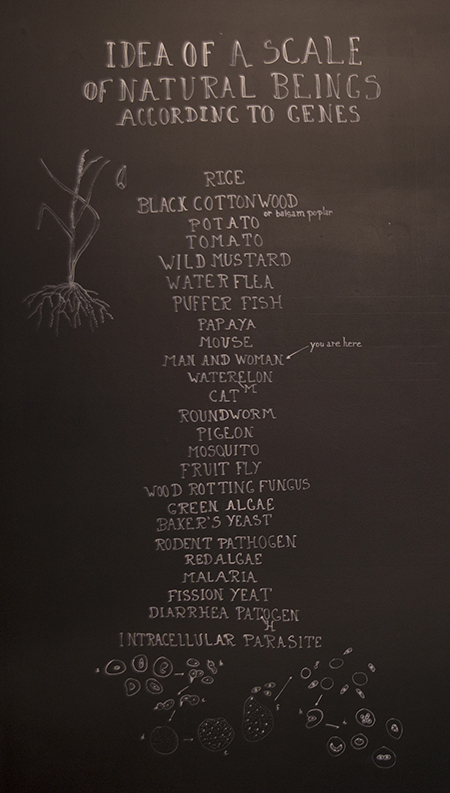 IDEA OF A SCALE
OF NATURAL BEINGS
ACCORDING TO GENES
RICE
BLACK COTTONWOOD
or balsam poplar
POTATO
TOMATO
WILD MUSTARD
WATER FLEA
PUFFER FISH
PAPAYA
MOUSE
you are here
MAN AND WOMAN
WATERELON
M
CAT
ROUNDWORM
PIGEON
MOSQUITO
FRUIT FLY
WOOD ROTTING FUNGUS
GREEN ALGAE
BAKER'S YEAST
RODENT PATHOGEN
RED ALGAE
MALARIA
FISSION YEAT
DIARRHEA PATOGEN
H
INTRACELLULAR PARASITE